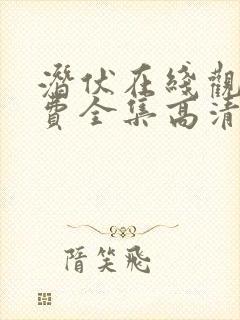 潛伏在綫觀
費全集高清
隋笑飛